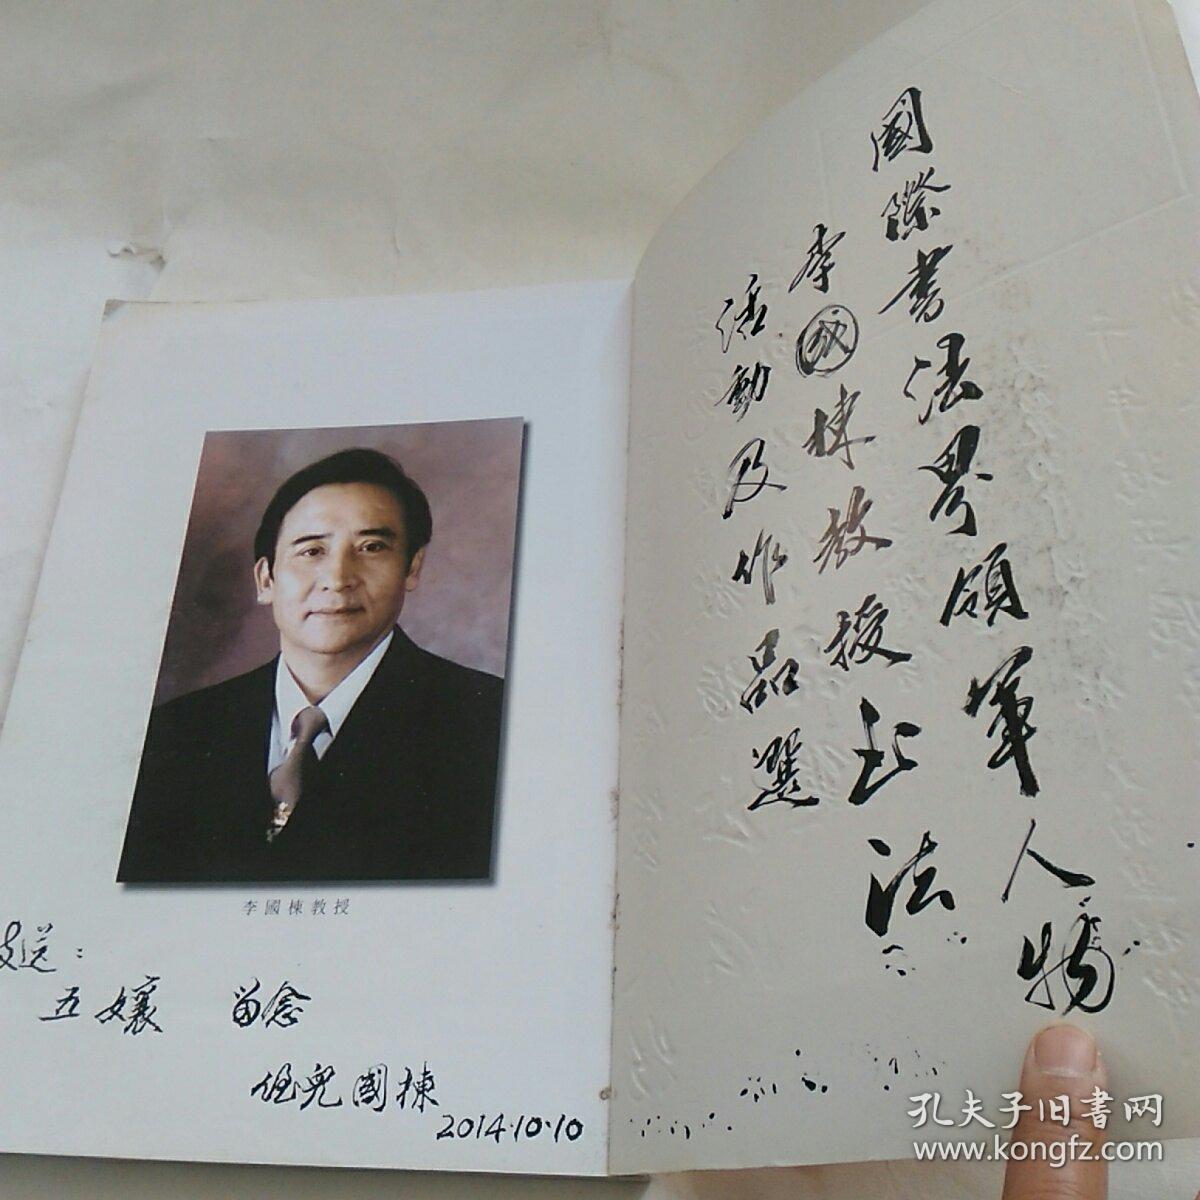 國際書法界領軍人物
李國棟教授書法
活動及作品選
李國棟教授
送：
五孃 留念
侄兒國棟
2014.10.10
孔夫子旧書网
www.kongfz.com